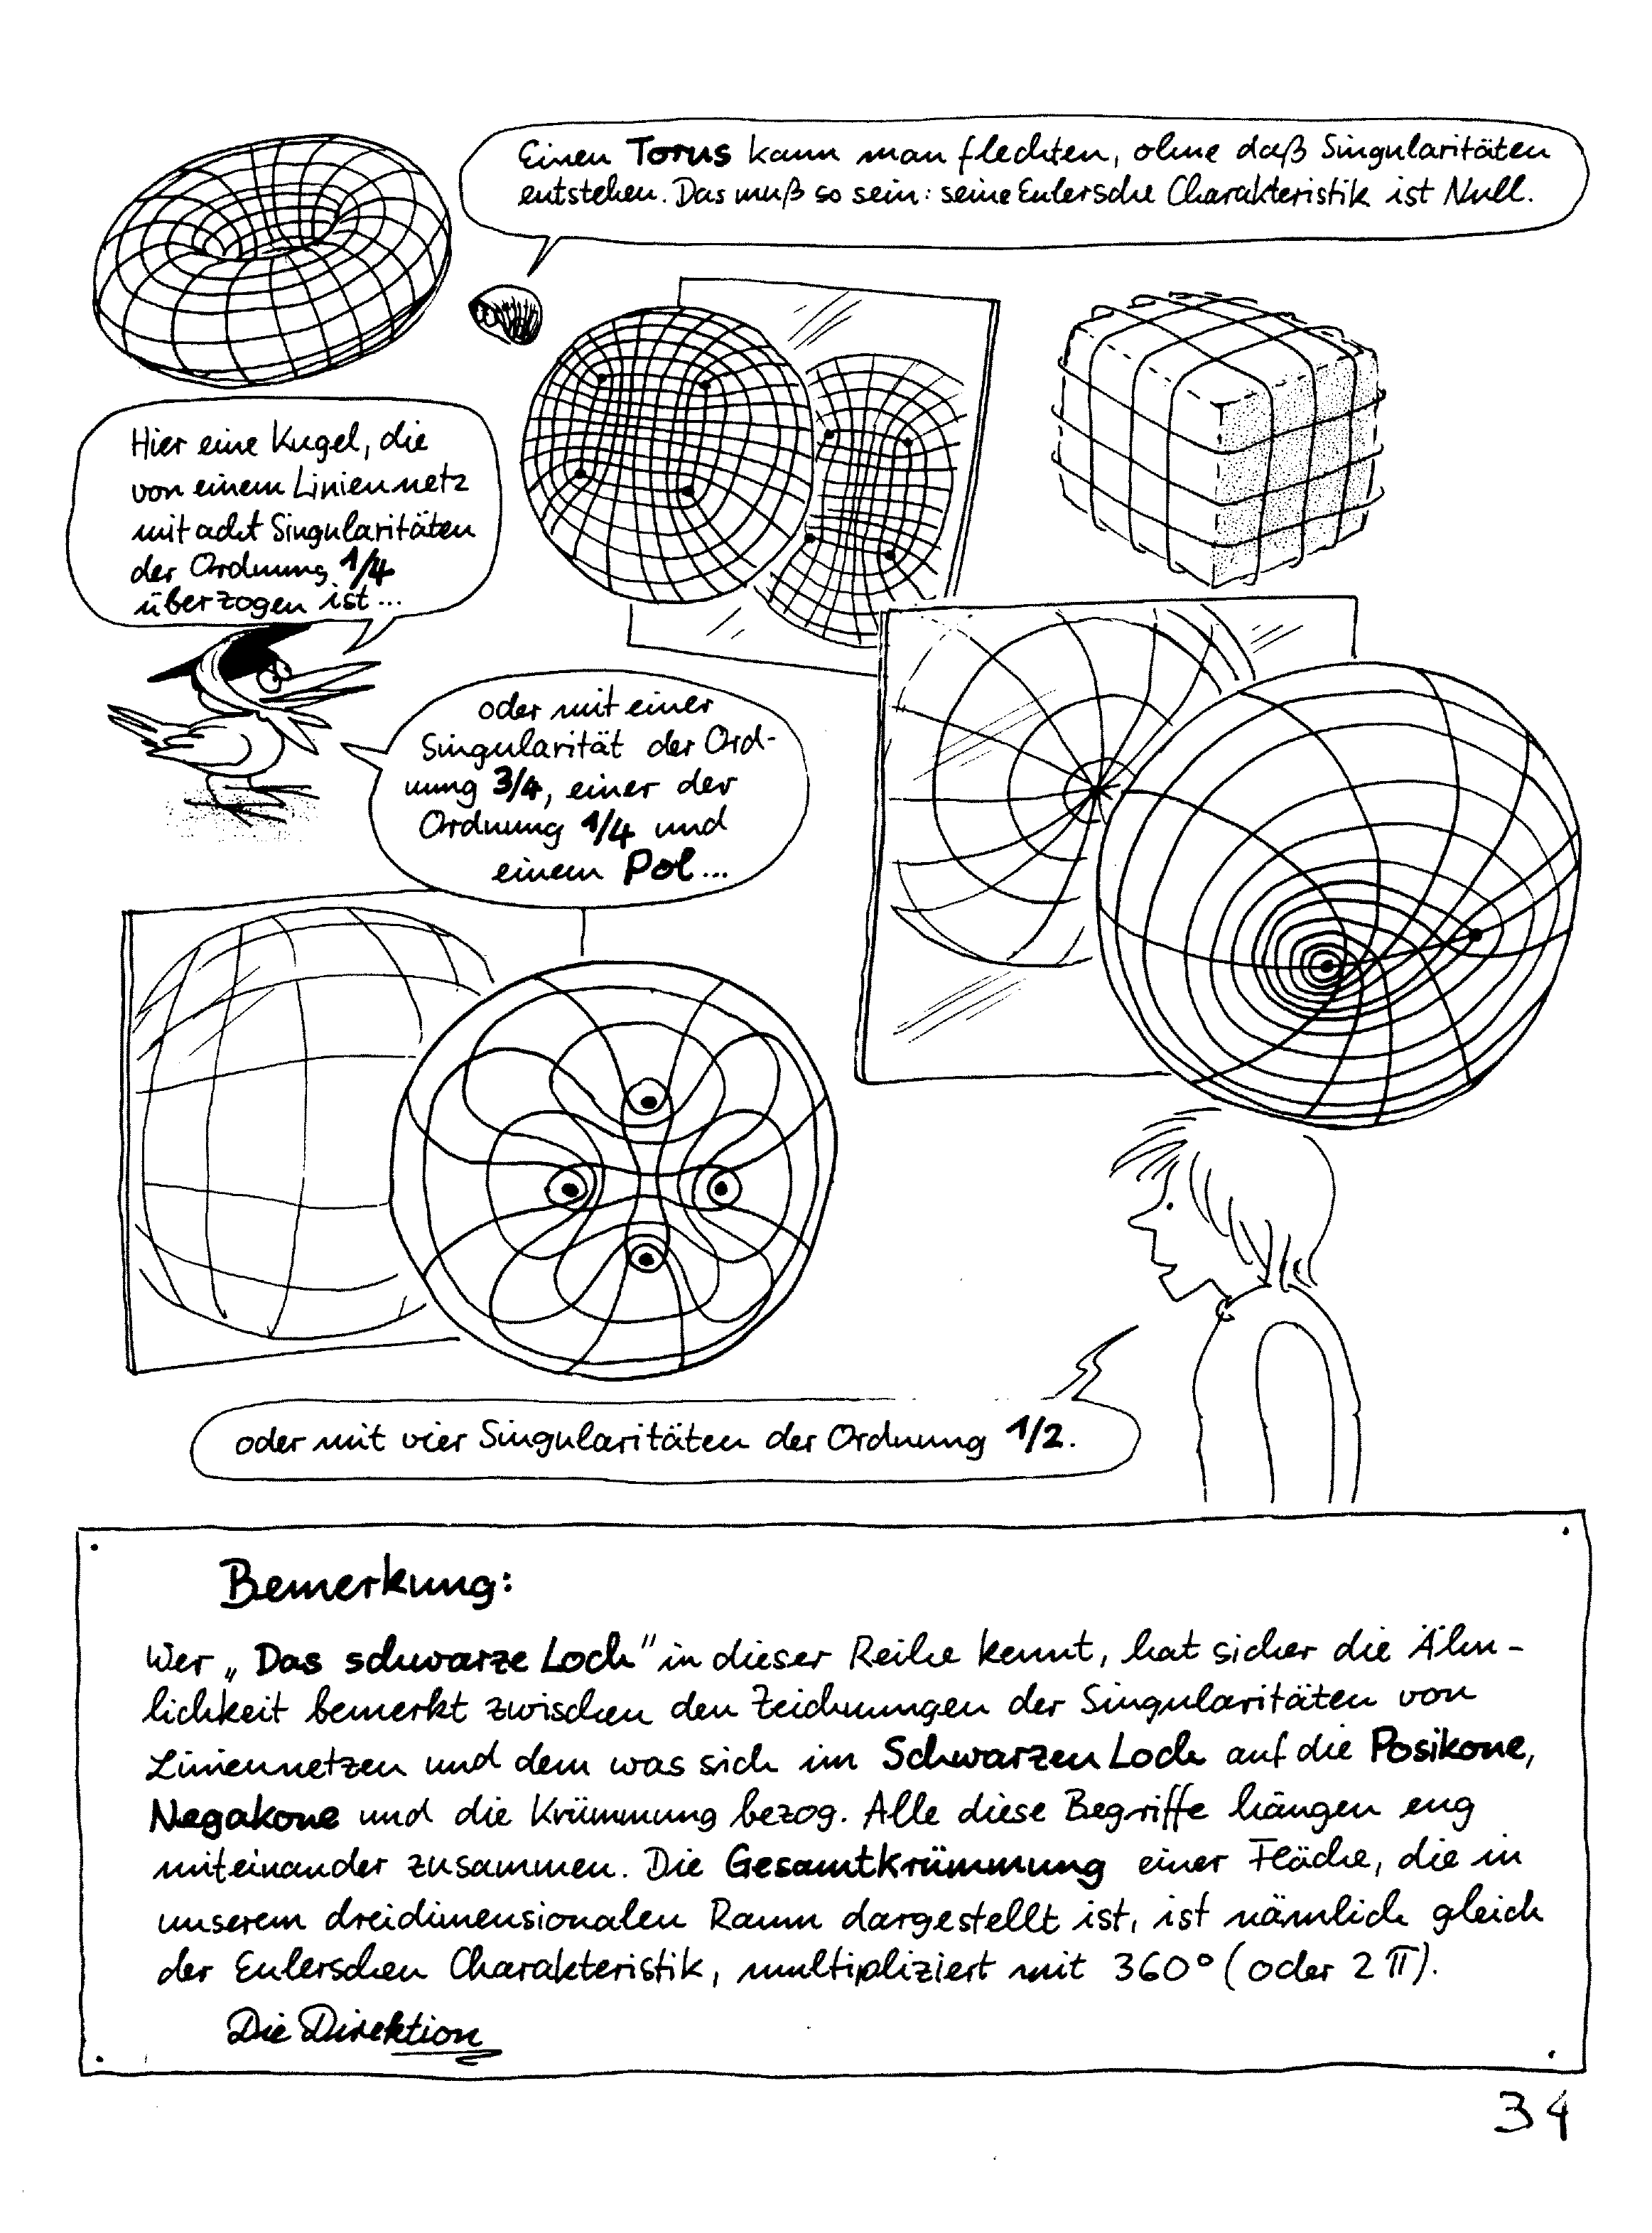 Einen Torus kann man flechten, ohne daß Singularitäten
entstehen. Das muß so sein: seine Eulersche Charakteristik ist Null.
Hier eine Kugel, die
von einem Liniennetz
mit acht Singularitäten
der Ordnung 1/4
überzogen ist...
oder mit einer
Singularität der Ord-
nung 3/4, einer der
Ordnung 1/4 und
einem Pol...
oder mit vier Singularitäten der Ordnung 1/2.
Bemerkung:
Wer „Das schwarze Loch" in dieser Reihe kennt, hat sicher die Ähn-
lichkeit bemerkt zwischen den Zeichnungen der Singularitäten von
Liniennetzen und dem was sich im Schwarzen Loch auf die Posikone,
Negakone und die Krümmung bezog. Alle diese Begriffe hängen eng
miteinander zusammen. Die Gesamtkrümmung einer Fläche, die in
unserem dreidimensionalen Raum dargestellt ist, ist nämlich gleich
der Eulerschen Charakteristik, multipliziert mit 360° (oder 2 π).
Die Direktion
34